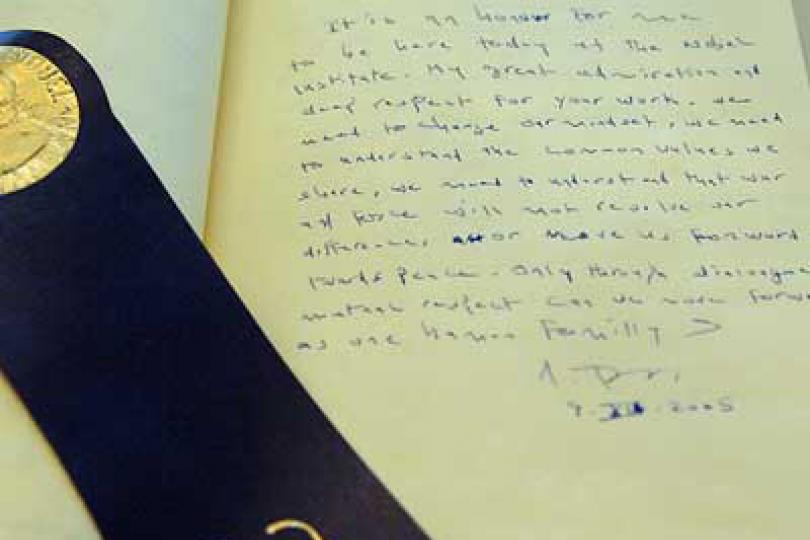 It is an honor for me
to be here today at the Nobel
institute. My great admiration and
deep respect for your work. we
need to change our mindset, we need
to understand the common values we
share, we need to understand that war
and force will not resolve our
differences, or move us forward
towards peace. Only through dialogue
mutual respect can we move forw
as one human familly
2005